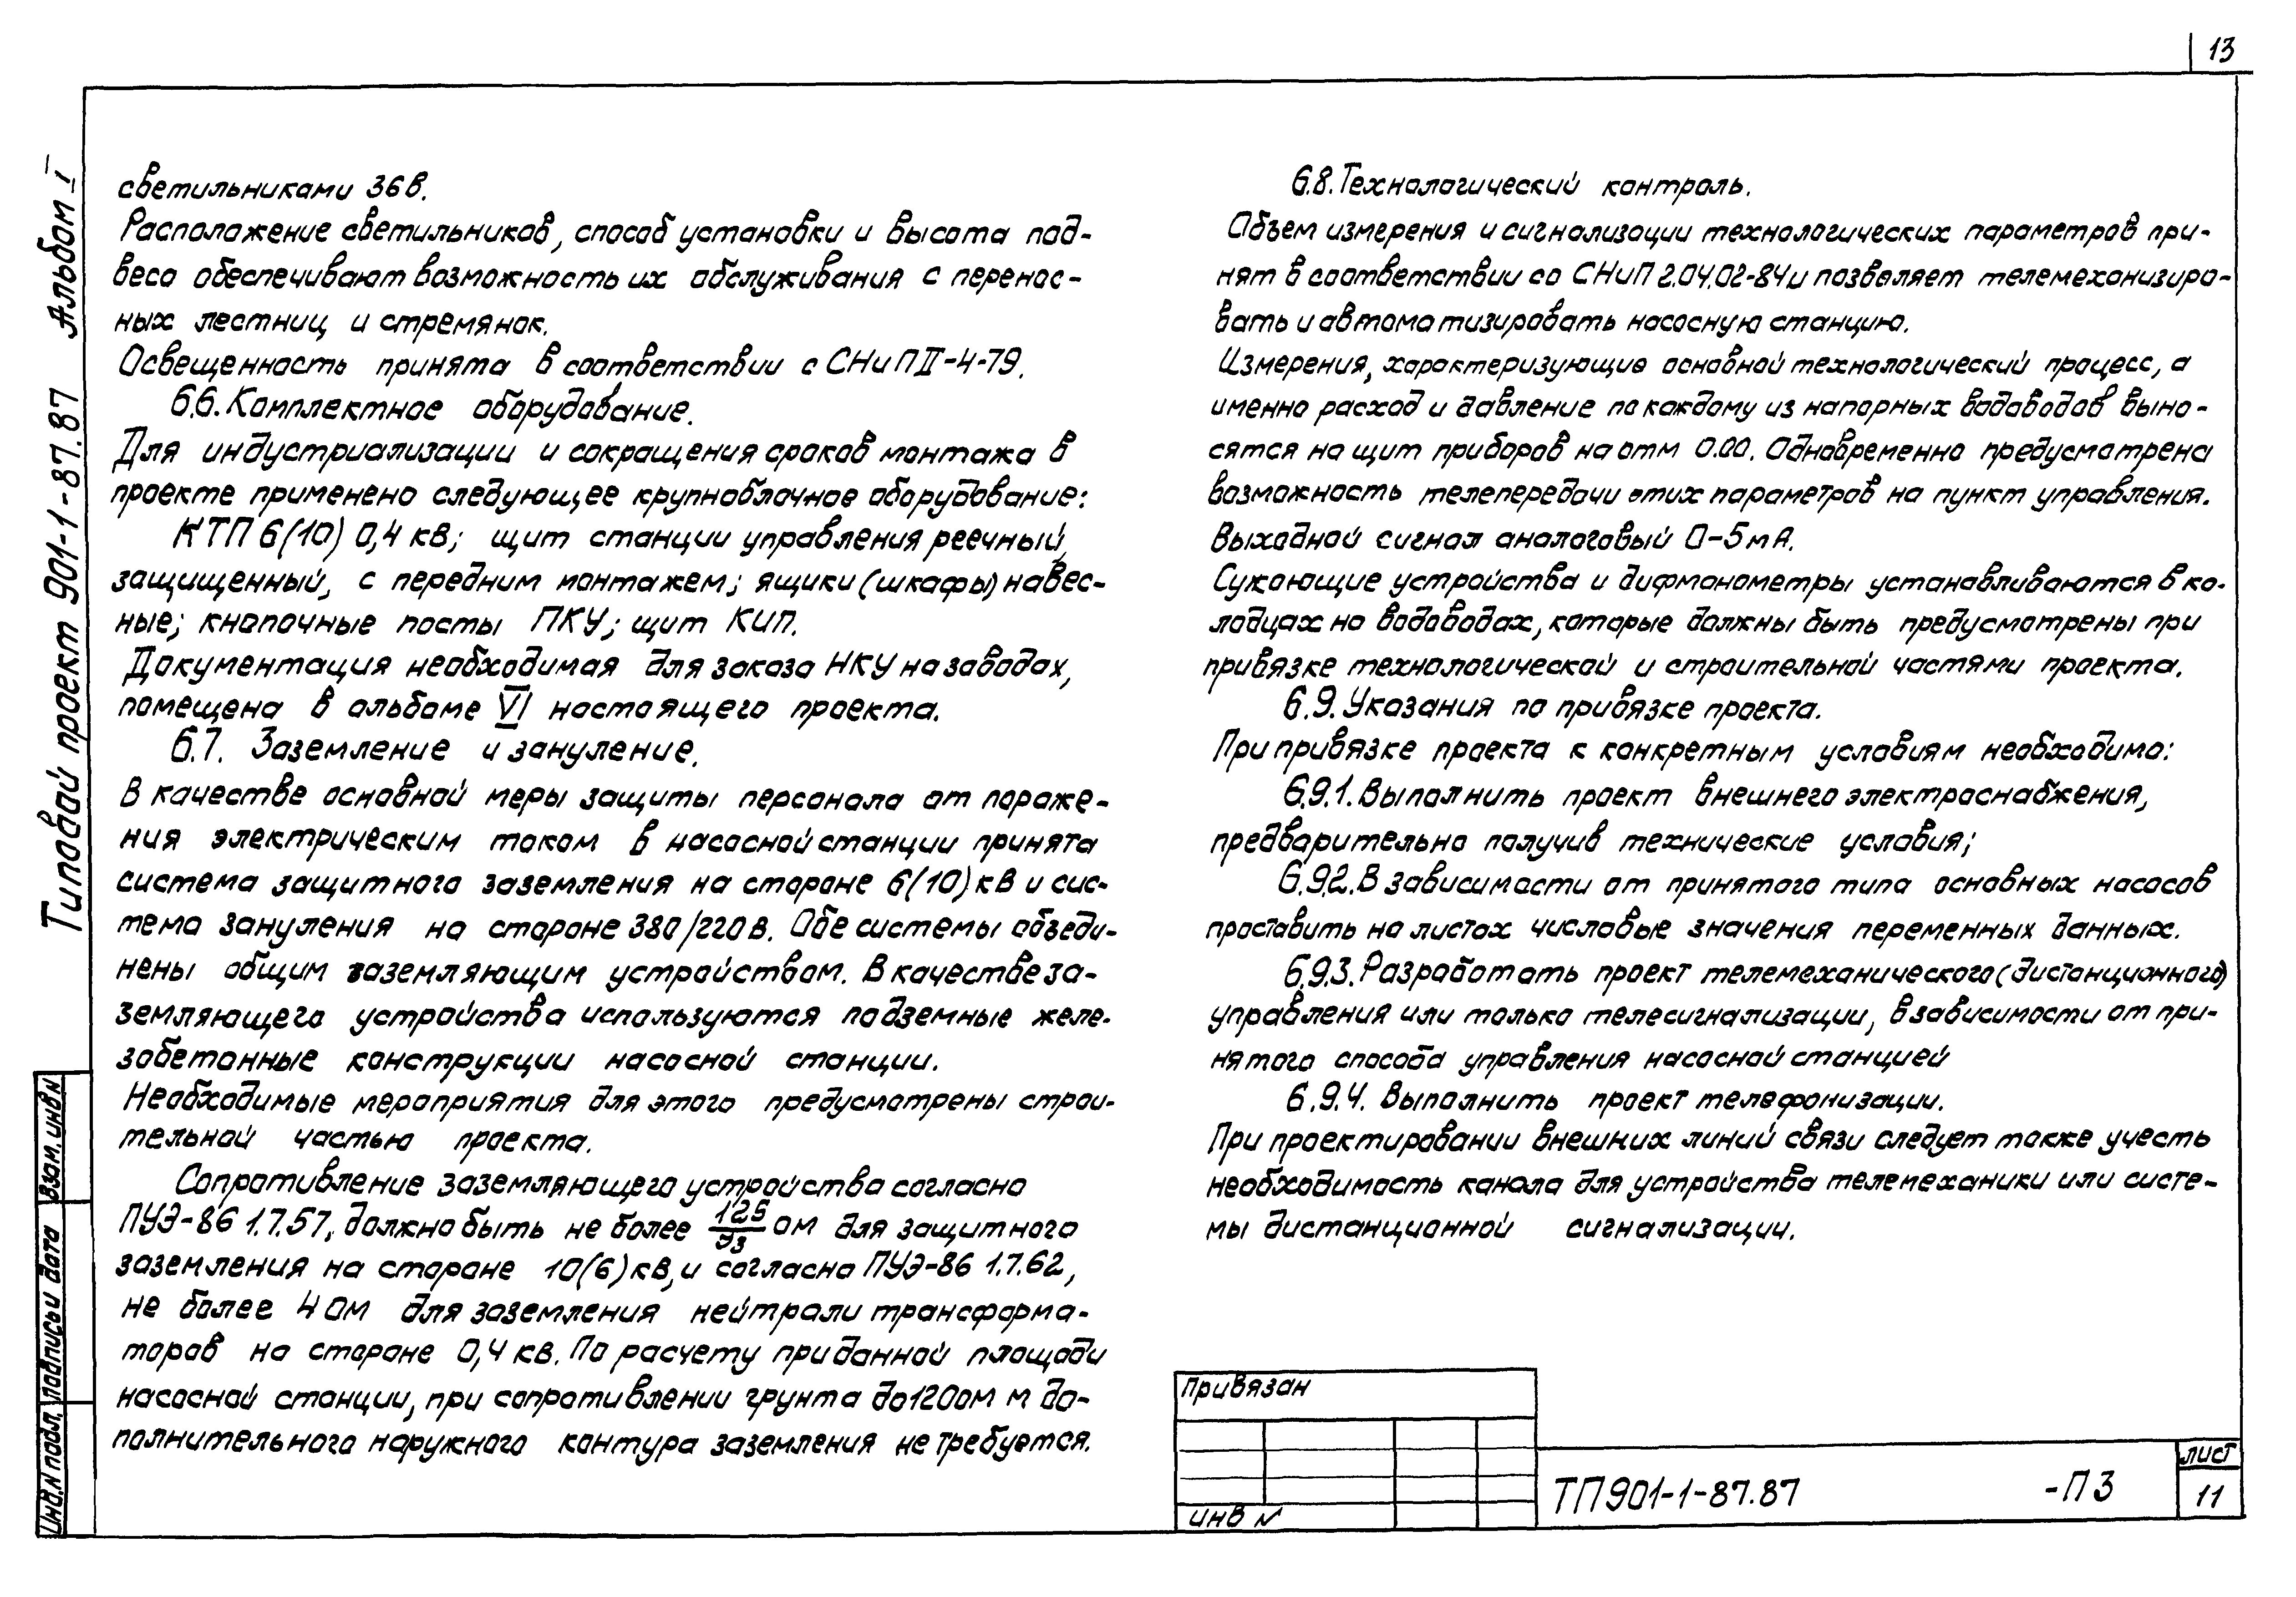 13
Типовой проект 901-1-87.87 Альбом I
светильниками 36в.
Расположение светильников, способ установки и высота под-
веса обеспечивают возможность их обслуживания с перенос-
ных лестниц и стремянок.
Освещенность принята в соответствии с СНиП II-4-79.
6.6. Комплектное оборудование.
Для индустриализации и сокращения сроков монтажа в
проекте применено следующее крупноблочное оборудование:
КТП 6(10) 0,4 кв; щит станции управления реечный,
защищенный, с передним монтажем; ящики (шкафы) навес-
ные; кнопочные посты ПКУ; щит КИП.
Документация необходимая для заказа НКУ на заводах,
помещена в альбоме VI настоящего проекта.
6.7. Заземление и зануление.
В качестве основной меры защиты персонала от пораже-
ния электрическим током в насосной станции принята
система защитного заземления на стороне 6(10) кв и сис-
тема зануления на стороне 380/220 в. Обе системы объеди-
нены общим заземляющим устройством. В качестве за-
земляющего устройства используются подземные желе-
зобетонные конструкции насосной станции.
Необходимые мероприятия для этого предусмотрены строи-
тельной частью проекта.
Сопротивление заземляющего устройства согласно
ПУЭ-86 1.7.57, должно быть не более 125/Jз ом для защитного
заземления на стороне 10(6) кв, и согласно ПУЭ-86 1.7.62,
не более 4 Ом для заземления нейтрали трансформа-
торов на стороне 0,4 кв. По расчету при данной площади
насосной станции, при сопротивлении грунта до 120 ом м до-
полнительного наружного контура заземления не требуется.
6.8. Технологический контроль.
Объем измерения и сигнализации технологических параметров при-
нят в соответствии со СНиП 2.04.02-84 и позволяет телемеханизиро-
вать и автоматизировать насосную станцию.
Измерения, характеризующие основной технологический процесс, а
именно расход и давление по каждому из напорных водоводов выно-
сятся на щит приборов на отм 0.00. Одновременно предусмотрена
возможность телепередачи этих параметров на пункт управления.
Выходной сигнал аналоговый 0-5 мА.
Сужающие устройства и дифманометры устанавливаются в ко-
лодцах на водоводах, которые должны быть предусмотрены при
привязке технологической и строительной частями проекта.
6.9. Указания по привязке проекта.
При привязке проекта к конкретным условиям необходимо:
6.9.1. Выполнить проект внешнего электроснабжения,
предварительно получив технические условия;
6.9.2. В зависимости от принятого типа основных насосов
проставить на листах числовые значения переменных данных.
6.9.3. Разработать проект телемеханического (дистанционного)
управления или только телесигнализации, в зависимости от при-
нятого способа управления насосной станцией
6.9.4. Выполнить проект телефонизации.
При проектировании внешних линий связи следует также учесть
необходимость канала для устройства телемеханики или систе-
мы дистанционной сигнализации.
Взам. инв N
Подпись и дата
Инв. N подл.
Привязан
инв N
ТП 901-1-87.87 -ПЗ
лист
11